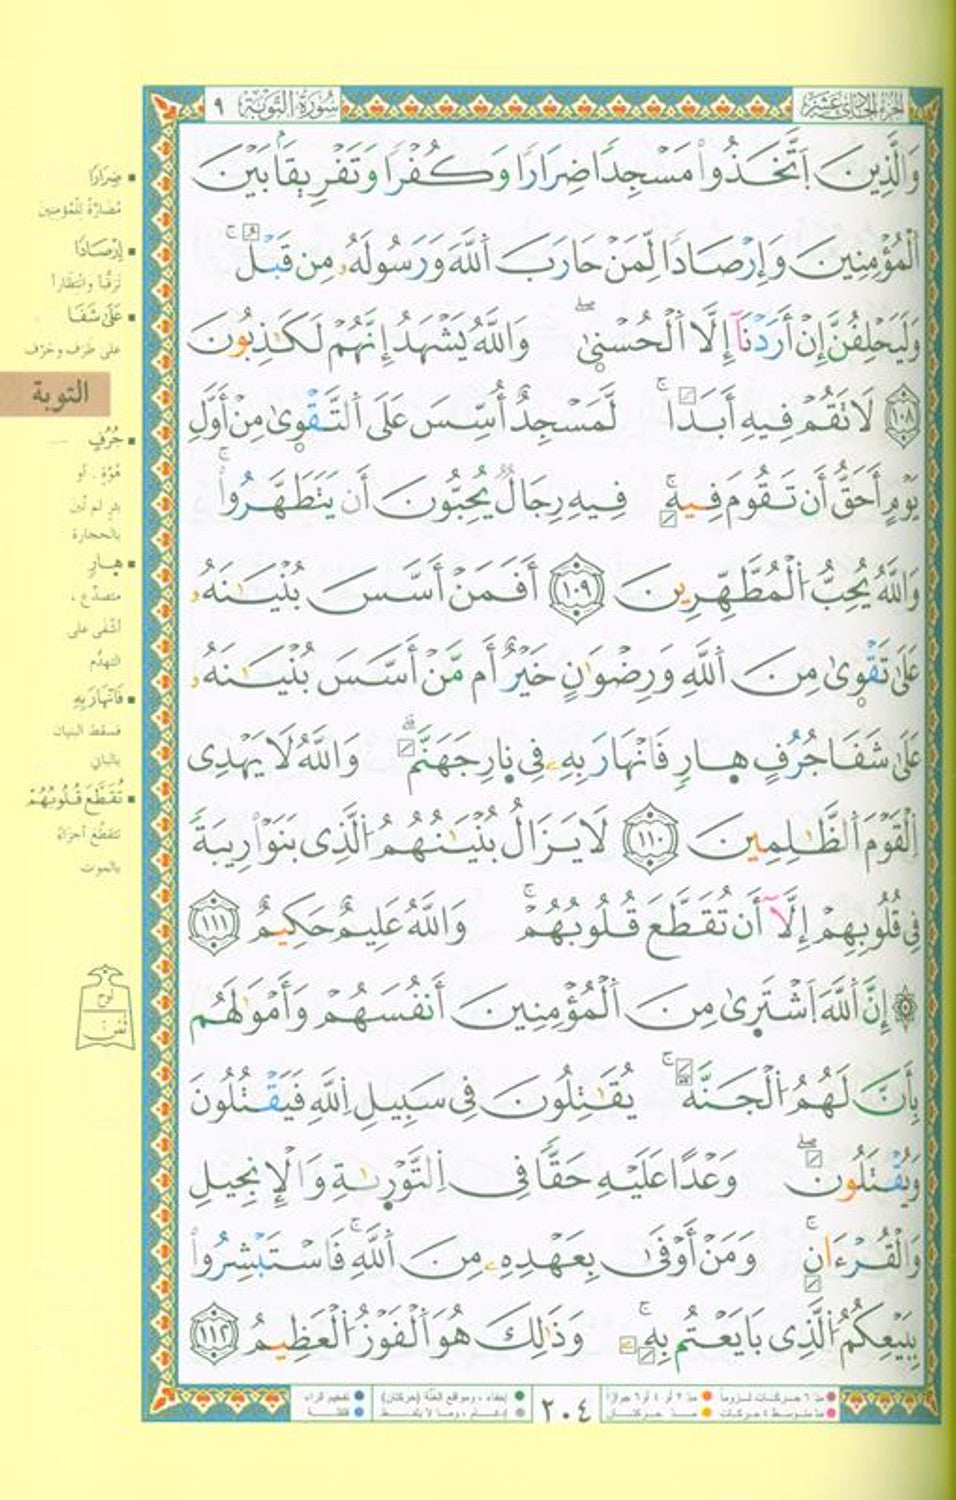 الجزء الحادي عشر
سُورَةُ التَّوْبَة ٩
وَالَّذِينَ اَتَّخَذُواْ مَسْجِدًا ضِرَارًا وَكُفْرًا وَتَفْرِيقًا بَيْنَ
اَلْمُؤْمِنِينَ وَإِرْصَادًا لِّمَنْ حَارَبَ اَللَّهَ وَرَسُولَهُۥ مِن قَبْلُ
وَلَيَحْلِفُنَّ إِنْ أَرَدْنَآ إِلَّا اَلْحُسْنىٰ وَاللَّهُ يَشْهَدُ إِنَّهُمْ لَكَٰذِبُونَ
١٠٨ لَا تَقُمْ فِيهِ أَبَدًا لَّمَسْجِدٌ أُسِّسَ عَلَى اَلتَّقْوىٰ مِنْ أَوَّلِ
يَوْمٍ أَحَقُّ أَن تَقُومَ فِيهِ فِيهِ رِجَالٌ يُحِبُّونَ أَن يَتَطَهَّرُواْ
وَاللَّهُ يُحِبُّ اُلْمُطَّهِّرِينَ ١٠٩ أَفَمَنْ أَسَّسَ بُنْيَٰنَهُۥ
عَلَىٰ تَقْوىٰ مِنَ اَللَّهِ وَرِضْوَٰنٍ خَيْرٌ أَم مَّنْ أَسَّسَ بُنْيَٰنَهُۥ
عَلَىٰ شَفَا جُرُفٍ هِارٍ فَانْهَارَ بِهِۦ فِي نِارِ جَهَنَّمَ وَاللَّهُ لَا يَهْدِى
اِلْقَوْمَ اَلظَّٰلِمِينَ ١١٠ لَا يَزَالُ بُنْيَٰنُهُمُ اُلَّذِى بَنَوْاْ رِيبَةً
فِى قُلُوبِهِمْ إِلَّآ أَن تُقَطَّعَ قُلُوبُهُمْ وَاللَّهُ عَلِيمٌ حَكِيمٌ ١١١
إِنَّ اَللَّهَ اَشْتَرِىٰ مِنَ اَلْمُؤْمِنِينَ أَنفُسَهُمْ وَأَمْوَٰلَهُم
بِأَنَّ لَهُمُ اُلْجَنَّةَ يُقَٰتِلُونَ فِى سَبِيلِ اِللَّهِ فَيَقْتُلُونَ
وَيُقْتَلُونَ وَعْدًا عَلَيْهِ حَقًّا فِى اِلتَّوْرِىٰةِ وَالْإِنجِيلِ
وَالْقُرْءَانِ وَمَنْ أَوْفَىٰ بِعَهْدِهِۦ مِنَ اَللَّهِ فَاسْتَبْشِرُواْ
بِبَيْعِكُمُ اُلَّذِى بَايَعْتُم بِهِۦ وَذَٰلِكَ هُوَ اَلْفَوْزُ اُلْعَظِيمُ ١١٢
▪ ضِرَارًا
مُضَارَّةً للمُؤمِنِين
▪ إِرْصَادًا
تَرَقُّباً وانْتِظاراً
▪ عَلَىٰ شَفَا
على طَرَف وحَرْف
التوبة
▪ جُرُفٍ
هُوَّةٍ . أو
بئرٍ لم تُبنَ
بالحجارة
▪ هِارٍ
متصدِّع ،
أشْفى على
التهدُّم
▪ فَانْهَارَ بِهِ
فسقط البنيان
بالباني
▪ تُقَطَّعَ قُلُوبُهُمْ
تتقطَّع أجزاءً
بالموت
٢٠٤
مدّ ٦ حركات لزوماً مدّ ٢ أو ٤ أو ٦ جوازاً
مدّ متوسط ٤ حركات مدّ حركتان
إخفاء، ومواقع الغنّة (حركتان) تفخيم الراء
إدغام، وما لا يُلفظ قلقلة